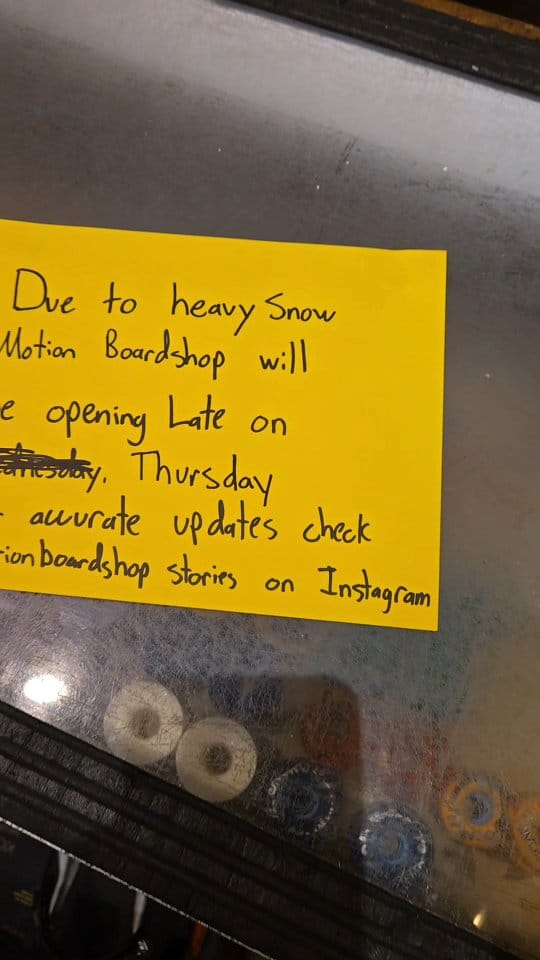 Due to heavy Snow
Motion Boardshop will
e opening Late on
Thursday
accurate updates check
tionboardshop stories on Instagram